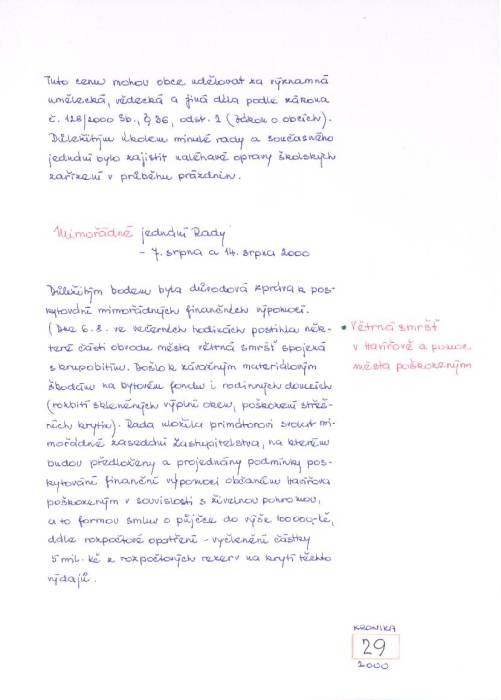 Tuto cenu mohou obce udělovat za významná
umělecká, vědecká a jiná díla podle zákona
č. 128/2000 Sb., § 36, odst. 2 (Zákon o obcích).
Důležitým úkolem minulé rady a současného
jednání bylo zajistit naléhavé opravy školských
zařízení v průběhu prázdnin.
Mimořádné jednání Rady
- 7. srpna a 14. srpna 2000
Důležitým bodem byla důvodová zpráva k pos-
kytování mimořádných finančních výpomocí.
(Dne 6.8. ve večerních hodinách postihla něk-
teré části obvodu města větrná smršť spojená
s krupobitím. Došlo k závažným materiálovým
škodám na bytovém fondu i rodinných domcích
(rozbití skleněných výplní oken, poškození střeš-
ních krytin). Rada uložila primátorovi svolat mi-
mořádné zasedání Zastupitelstva, na kterém
budou předloženy a projednány podmínky pos-
kytování finanční výpomoci občanům Havířova
poškozeným v souvislosti s živelnou pohromou,
a to formou smluv o půjčce do výše 100000,-Kč,
dále rozpočtové opatření - vyčlenění částky
5 mil. Kč z rozpočtových rezerv na krytí těchto
výdajů.
• Větrná smršť
v Havířově a pomoc
města poškozeným
KRONIKA
29
2000